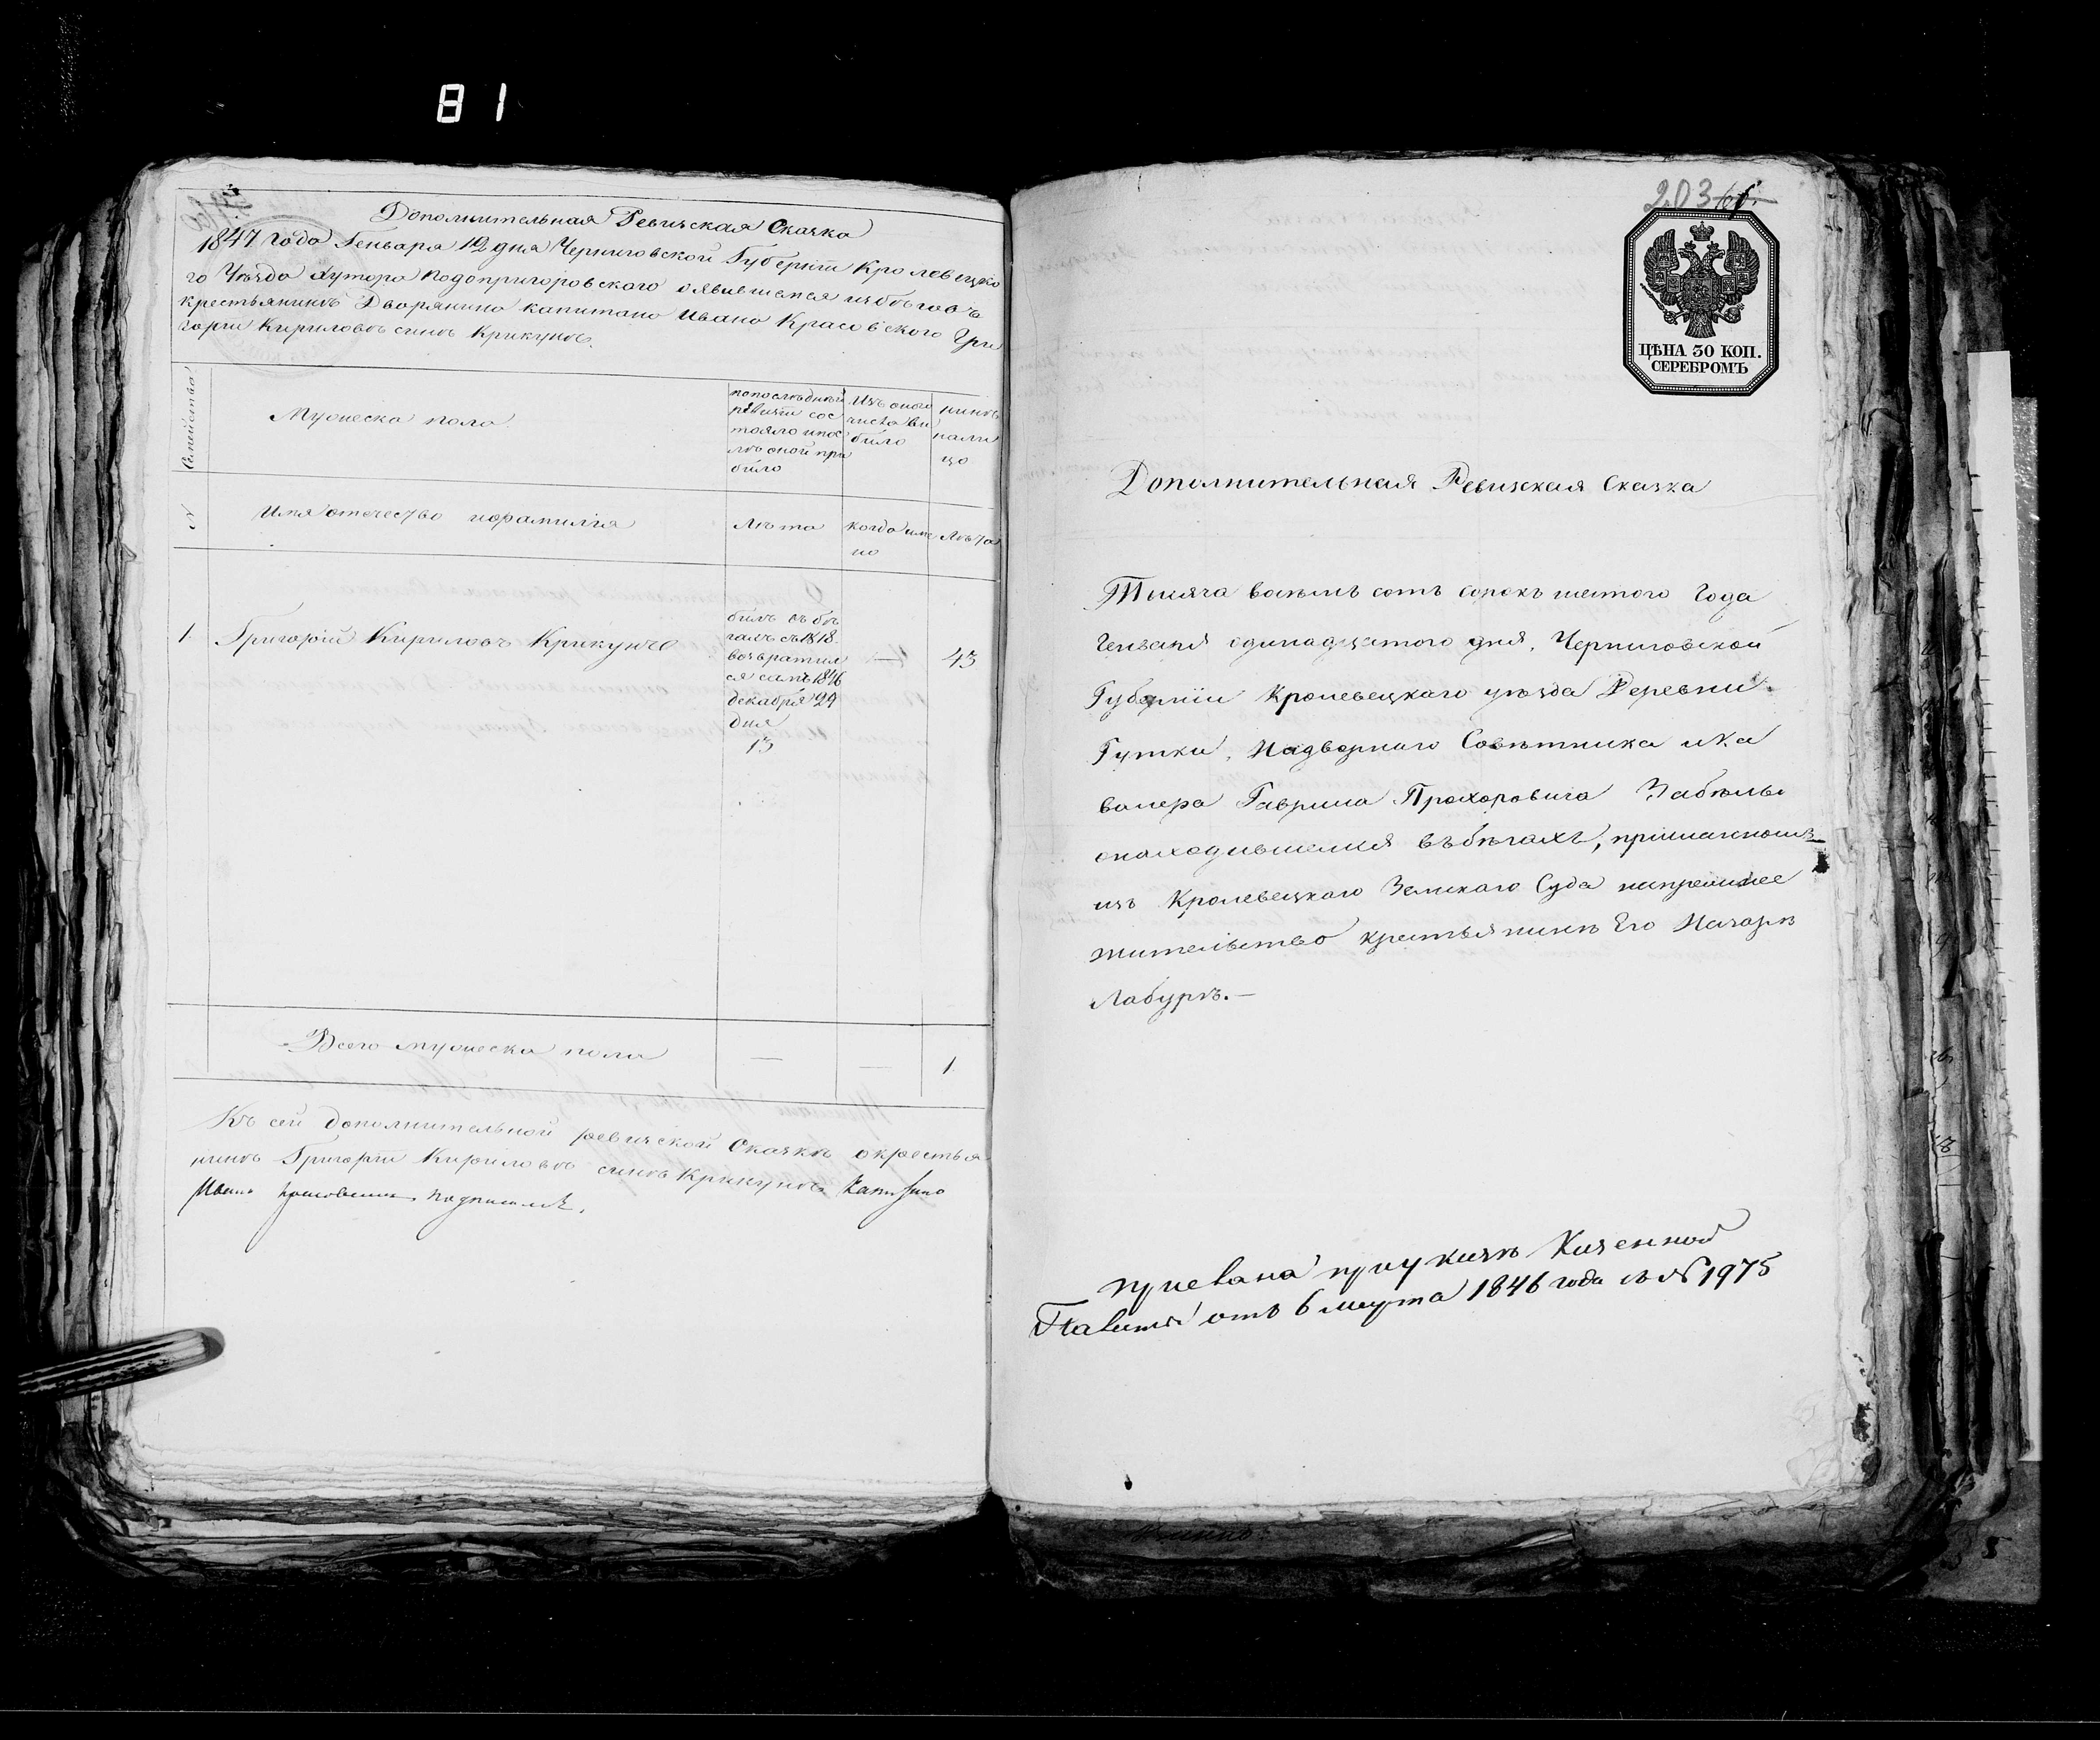 81
Дополнительная Ревизская Сказка
1847 года Генваря 12 дня Черниговской Губерніи Кролевецко
го Уѣзда Хутора Подопригоровского оявившемся избѣговъ
крестьянинѣ Дворянина капитана Ивана Красовского Гри
горіи Кириловѣ синѣ Крикунѣ.
Семейства
Мужеска пола
попослѣдней
ревизіи сос
тояло ипос
лѣ оной при
било
Изъ оного
числа ви
било
нинѣ
нали
цо
№
Имя отечество ифамилія
Лѣта
когда име
но
Лѣта
1
Григорій Кириловъ Крикунъ
билъ въ бѣ
гахъ съ 1818
возвратил
ся самъ 1846
декабря 29
дня
13
—
43
Всего мужеска пола
—
—
1
Къ сей дополнительной ревизской Сказкѣ окрестья
нинѣ Григоріи Кириловѣ синѣ Крикунѣ Капитано
Иванъ Красовский подписался.
203
ЦѢНА 30 КОП.
СЕРЕБРОМЪ
Дополнительная Ревизкая Сказка
Тисяча восемь сотъ сорокъ шестого Года
Генваря одинадцатого дня, Черниговской
Губерніи Кролевецкаго уѣзда Деревни
Гутки, Надворнаго Совѣтника и Ка
валера Гаврила Прохоровича Забѣлы
онаходившемся въбѣгахъ, присланномъ
изъ Кролевецкаго Земскаго Суда напрежнее
жительство крестьянинѣ Его Назарѣ
Лабурѣ. —
при указѣ Казенной
Палаты отъ 6 марта 1846 года за № 1975